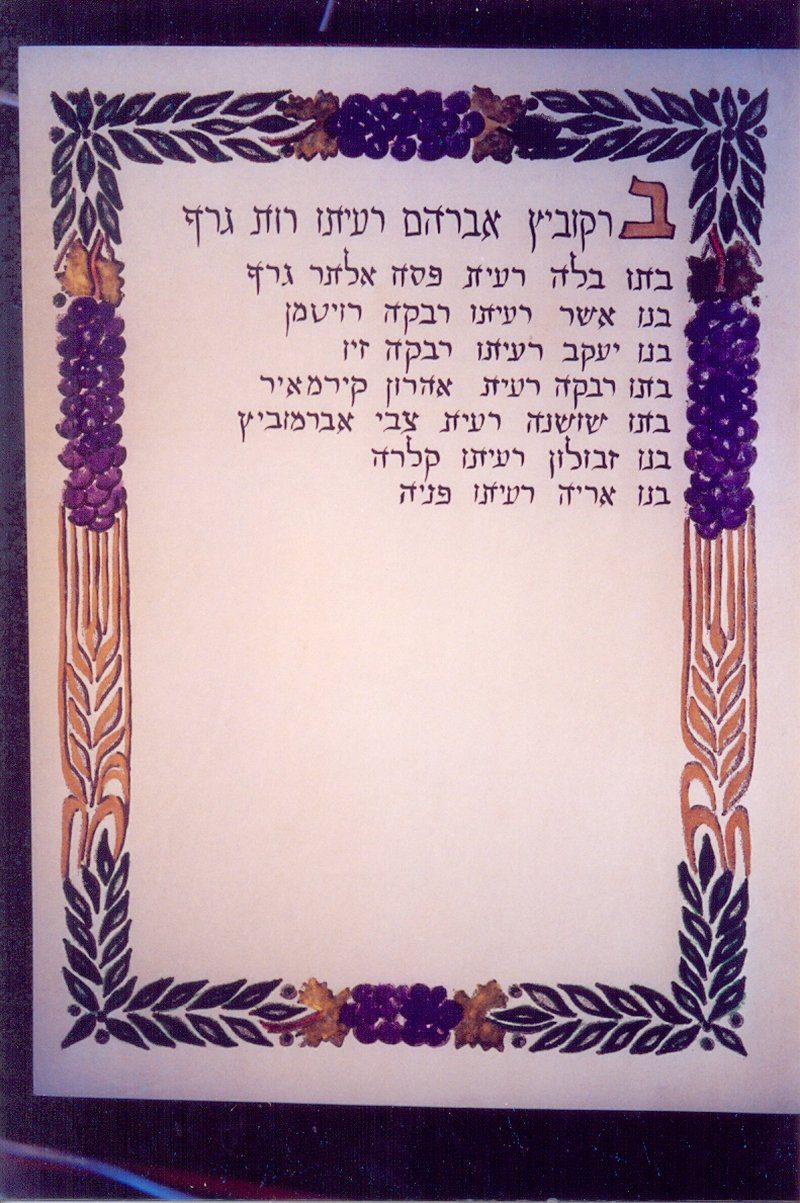 ברקוביץ אברהם רעיתו רות גרף
בתו בלה רעית פסח אלתר גרף
בנו אשר רעיתו רבקה רויטמן
בנו יעקב רעיתו רבקה זיו
בתו רבקה רעית אהרון קירמאיר
בתו שושנה רעית צבי אברמוביץ
בנו זבולון רעיתו קלרה
בנו אריה רעיתו פניה